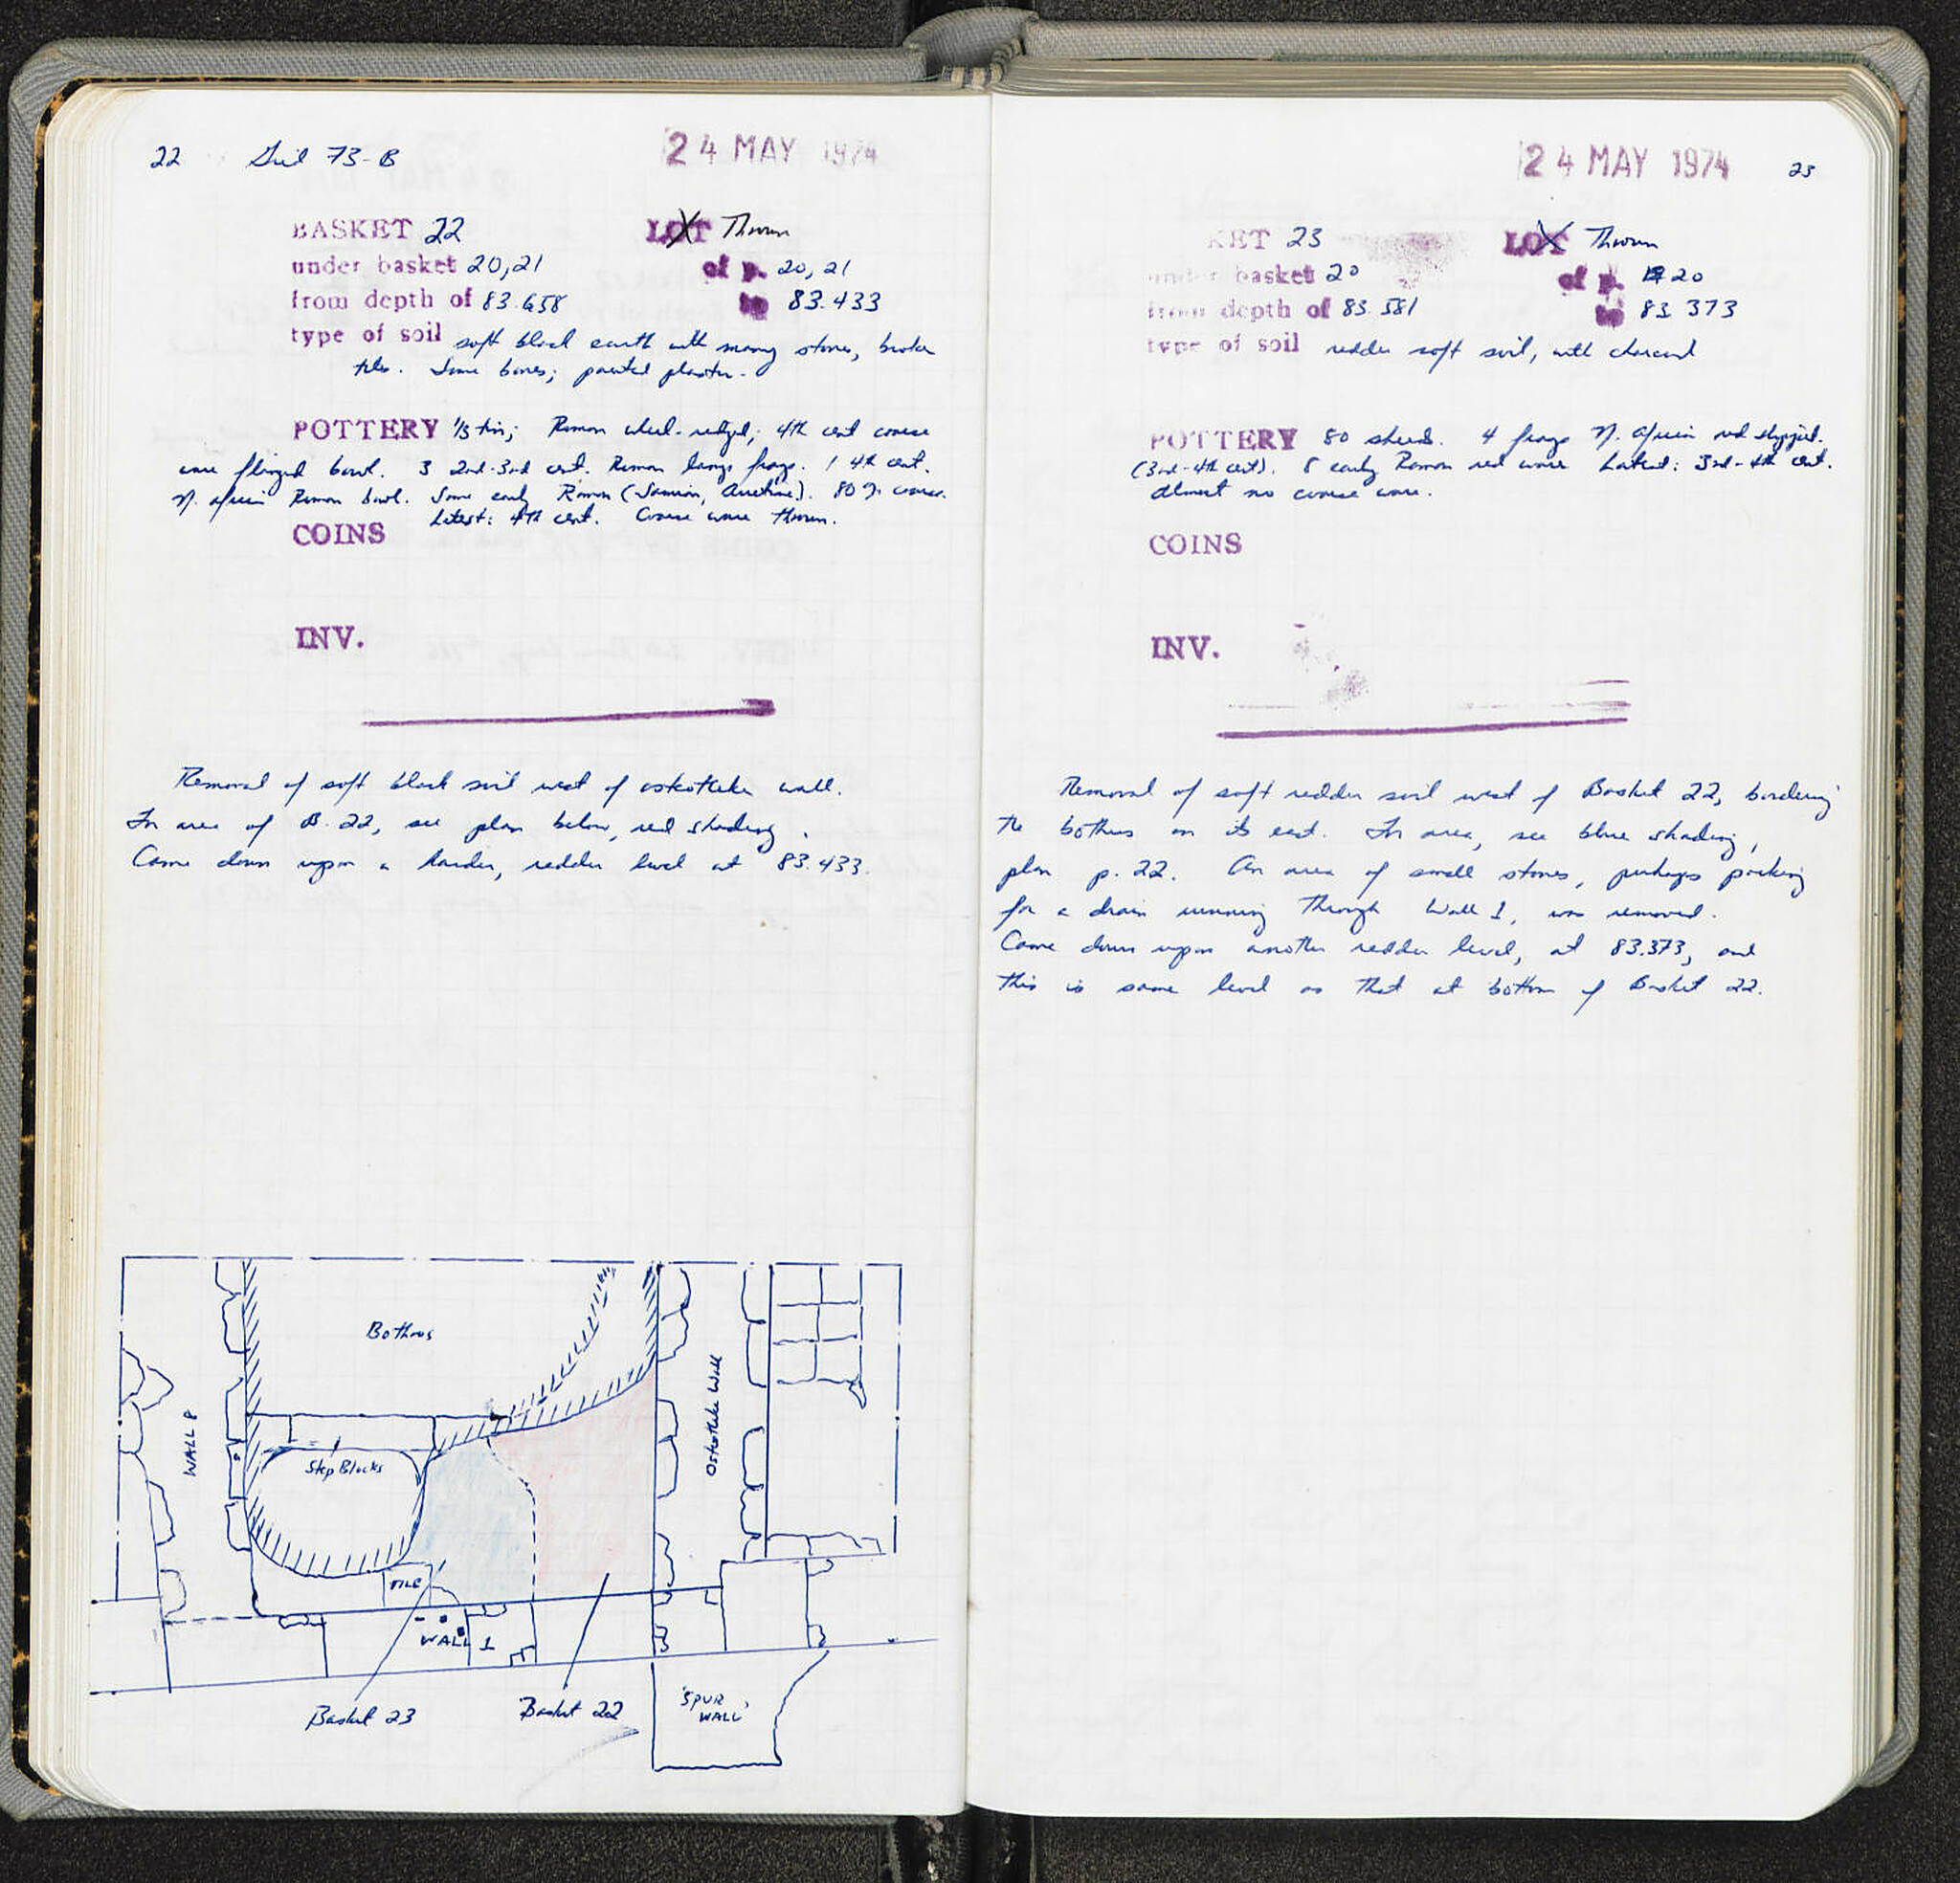 22 Grid 73-B 24 MAY 1974
BASKET 22 LOT Thrown
under basket 20,21 of p. 20, 21
from depth of 83.658 to 83.433
type of soil soft black earth with many stones, broken
tiles. Some bones; painted plaster.
POTTERY 1/3 tin; Roman wheel-ridged; 4th cent coarse
ware flanged bowl. 3 2nd-3rd cent. Roman lamp frags. 1 4th cent.
N. African Roman bowl. Some early Roman (Samian, Arretine). 80% coarse.
Latest: 4th cent. Coarse ware thrown.
COINS
INV.
Removal of soft black soil west of ostotheke wall.
For area of B. 22, see plan below, red shading.
Came down upon a harder, redder level at 83.433.
Bothros
WALL 8
Step Blocks
Ostotheke Wall
TILE
WALL 1
Basket 23
Basket 22
'SPUR
WALL'
24 MAY 1974 23
KET 23 LOT Thrown
under basket 20 of p. 20
from depth of 83.581 to 83.373
type of soil redder soft soil, with charcoal
POTTERY 80 sherds. 4 frags N. African red slipped.
(3rd-4th cent). 8 early Roman red ware. Latest: 3rd-4th cent.
Almost no coarse ware.
COINS
INV.
Removal of soft redder soil west of Basket 22, bordering
the bothros on its east. For area, see blue shading,
plan p. 22. An area of small stones, perhaps packing
for a drain running through Wall 1, was removed.
Came down upon another redder level, at 83.373, and
this is same level as that at bottom of Basket 22.